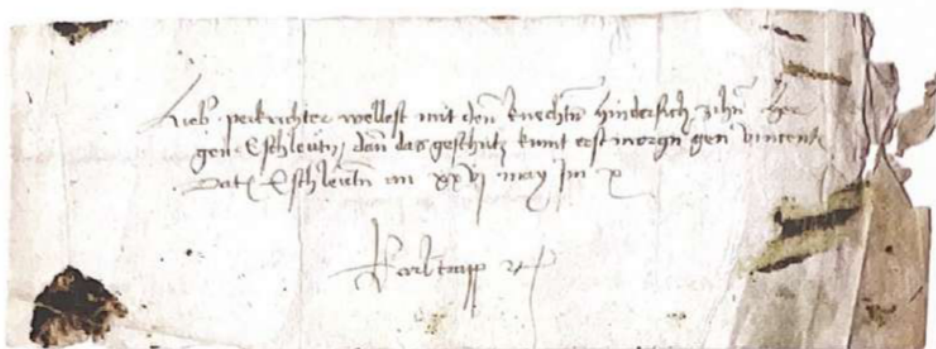 Lieb. perkrichter wellest mit den knechtn hindersich zihn her
gen Eschleutn, dan das geschutz kumt erst morgn gen vincentz
Dat Eschleutn an xxvj may Im x
Karl trapp